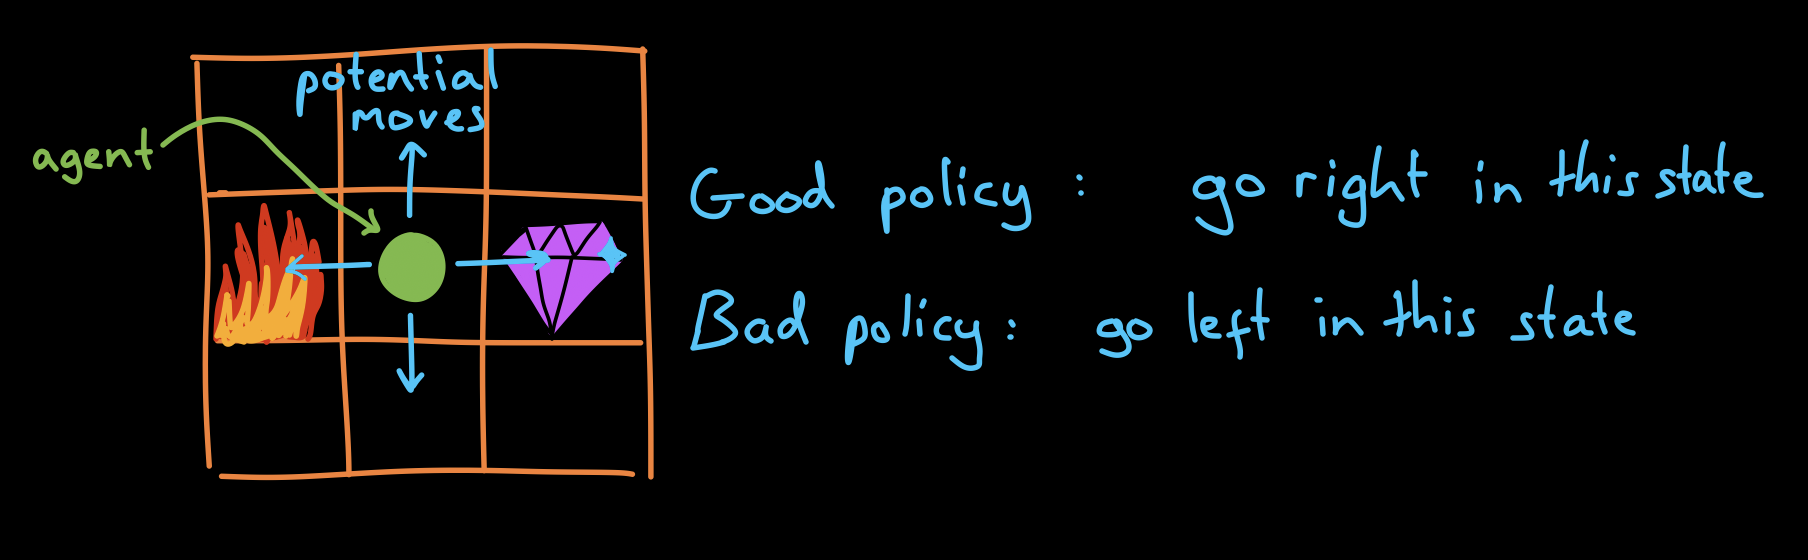 potential
moves
agent
Good policy: go right in this state
Bad policy: go left in this state